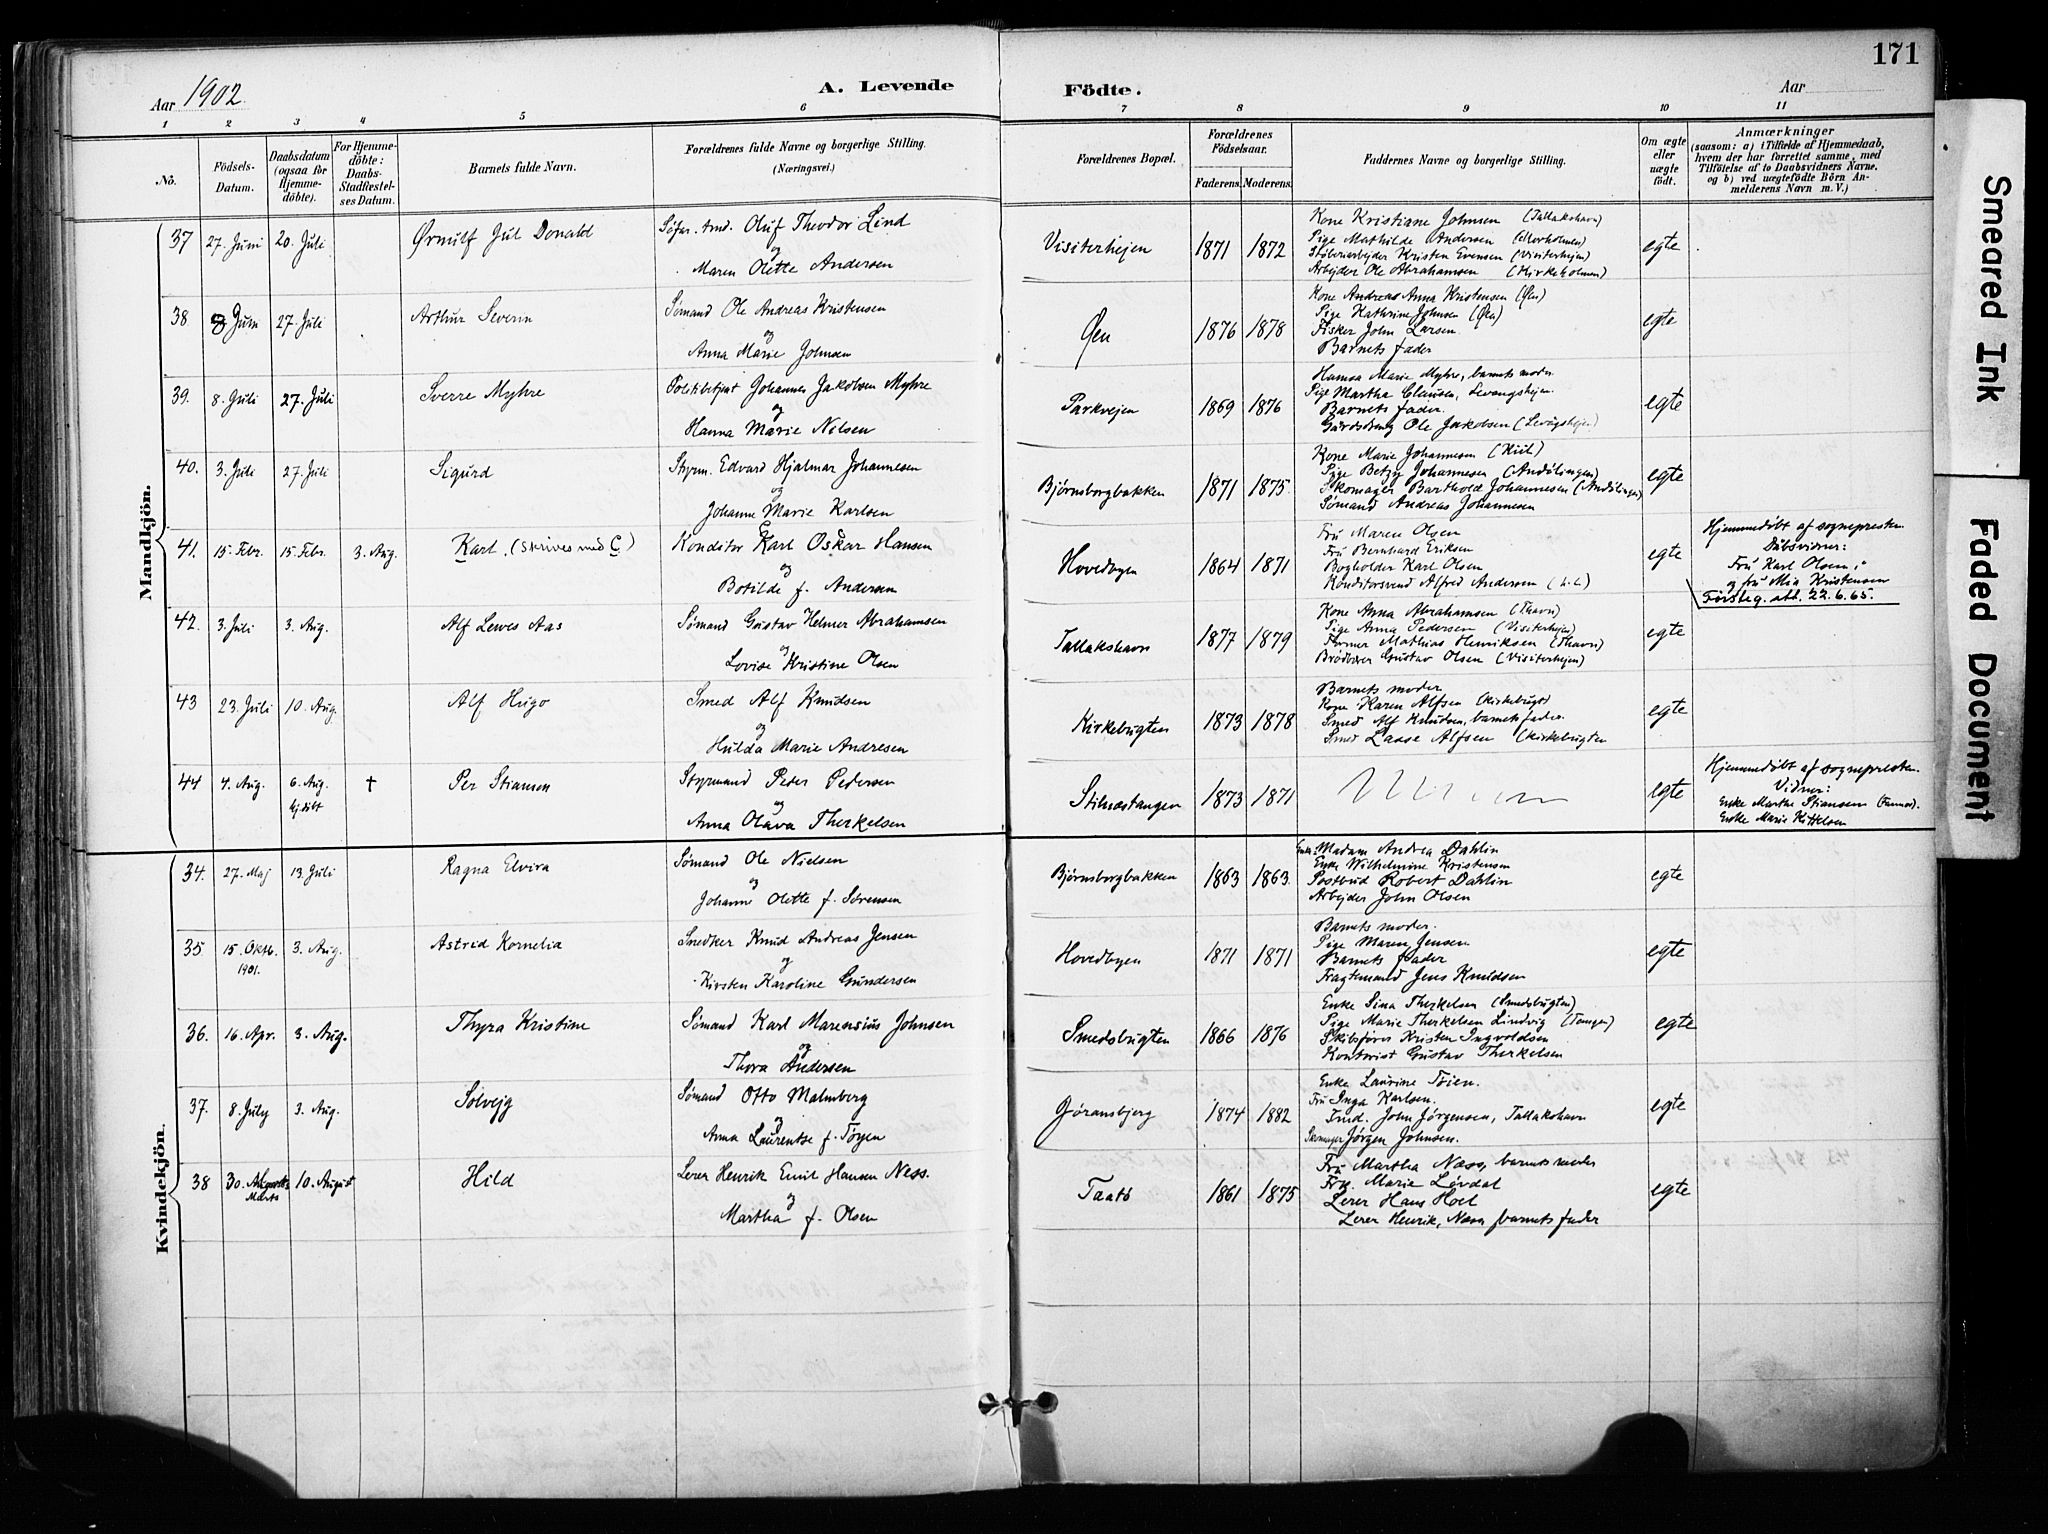 171
Aar 1902.
A. Levende Födte.
Aar
1 2 3 4 5 6 7 8 9 10 11
No.
Födsels-Datum.
Daabsdatum (ogsaa for Hjemmedöbte).
For Hjemmedöbte: Daabs-Stadfestelses Datum.
Barnets fulde Navn.
Forældrenes fulde Navne og borgerlige Stilling.
(Næringsvei.)
Forældrenes Bopæl.
Forældrenes Födselsaar.
Faderens. Moderens.
Faddernes Navne og borgerlige Stilling.
Om ægte eller uægte födt.
Anmærkninger
(saasom: a) i Tilfælde af Hjemmedaab, hvem der har forrettet samme, med Tilföielse af to Daabsvidners Navne, og b) ved uægtefödte Börn Anmelderens Navn m. V.)
Mandkjön.
37 27. Juni 20. Juli Ørnulf Jul Donald
Oluf Theodor Lind
og
Maren Olette Andersen
Visiterhejen 1871 1872
Kone Kristiane Johnsen (Tallakshavn)
Pige Mathilde Andersen
Støberiarbejder Kristen Evensen (Visiterhejen)
Arbejder Ole Abrahamsen (Kirkeholmen)
egte
38 8 Juni 27. Juli Arthur Severin
Sømand Ole Andreas Kristensen
og
Anna Marie Johnsen
Øen 1876 1878
Kone Andreas Anna Kristensen (Øen)
Pige Kathrine Johnsen (Øen)
Fisker John Larsen
Barnets fader
egte
39. 8. Juli 27. Juli Sverre Myhre
Politibetjent Johannes Jakobsen Myhre
og
Hanna Marie Nilsen
Parkvejen 1869 1876
Hanna Marie Myhre, barnets moder
Pige Martha Clausen, Levangshejen.
Barnets fader.
Gårdsdreng Ole Jakobsen
egte
40. 3. Juli 27. Juli Sigurd
Styrm. Edvard Hjalmar Johannesen
og
Johanne Marie Karlsen
Bjørnsborgbakken 1871 1875
Kone Marie Johannesen (Kiil)
Pige Betzy Johannesen
Skomager Barthold Johannesen
Sømand Andreas Johannesen
egte
41. 15. Febr. 15. Febr. 3. Aug. Karl. (skrives med C)
Konditor Karl Oskar Hansen
og
Botilde f. Andersen
Hovedbyen 1864 1871
Fru Maren Olsen
Fru Bernhard Eriksen
Bogholder Karl Olsen
Konditorsvend Alfred Andersen
egte
Hjemmedøbt af sognepresten
Dåbsvidner:
Fru Karl Olsen
og fru Mia Kristensen
Førsteg. att. 22.6.65.
42. 3. Juli 3. Aug. Alf Lewes Aas
Sømand Gustav Helmer Abrahamsen
og
Lovise Kristine Olsen
Tallakshavn 1877 1879
Kone Anna Abrahamsen (Thavn)
Pige Anna Pedersen (Visiterhejen)
Mathias Henriksen (Thavn)
Gustav Olsen (Visiterhejen)
egte
43 23. Juli 10. Aug. Alf Hugo
Smed Alf Knudsen
og
Hulda Marie Andresen
Kirkebugten 1873 1878
Barnets moder
Kone Karen Alfsen (Kirkebugt)
Smed Alf Knudsen, barnets fader.
Smed Lasse Alfsen (Kirkebugten
egte
44 4. Aug. 6. Aug. hj.døbt † Per Stiansen
Styrmand Peter Pedersen
og
Anna Olava Therkelsen
Stilnæstangen 1873 1871
egte
Hjemmedøbt af sognepresten.
Vidner:
Enke Marthe Stiansen
Enke Marie Kittelsen
Kvindekjön.
34. 27. Maj 13. Juli Ragna Elvira
Sømand Ole Nielsen
og
Johanne Olette f. Sørensen
Bjørnsborgbakken 1863 1863.
Madam Andrea Dahlin
Enke Wilhelmine Kristensen
Postbud Robert Dahlin
Arbejder John Olsen
egte
35. 15. Oktb. 1901. 3. Aug. Astrid Kornelia
Snedker Knud Andreas Jensen
og
Kirsten Karoline Gundersen
Hovedbyen 1871 1871
Barnets moder.
Pige Maren Jensen
Barnets fader
Fragtemand Jens Knudsen
egte
36. 16. Apr. 3. Aug. Thyra Kristine
Sømand Karl Marensius Johnsen
og
Thora Andersen
Smedsbugten 1866 1876
Enke Sina Therkelsen (Smedsbugten)
Pige Marie Therkelsen Lindvig (Tangen)
Skibsfører Kristen Ingvoldsen
Kontorist Gustav Therkelsen
egte
37. 8. July 3. Aug. Solvejg
Sømand Otto Malmberg
og
Anna Laurentse f. Tøyen
Gjøransbjerg 1874 1882
Enke Laurine Tøien.
Fru Inga Karlsen.
Tmd. John Jørgensen, Tallakshavn
Skomager Jørgen Johnsen.
egte
38 30. Marts 10. August Hild
Lerer Henrik Emil Hansen Ness.
og
Martha f. Olsen
Taatø 1861 1875
Fru Martha Næss, barnets moder
Frk. Marie Løvdal
Lerer Hans Hoel
Lerer Henrik Næss, barnets fader
egte
Smeared Ink
Faded Document